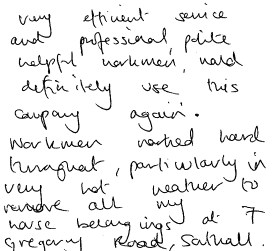 very efficient service
and professional, polite
helpful workmen, would
definitely use this
company again.
Workmen worked hard
throughout, particularly in
very hot weather to
remove all my
house belongings at 7
Gregory Road, Southall.